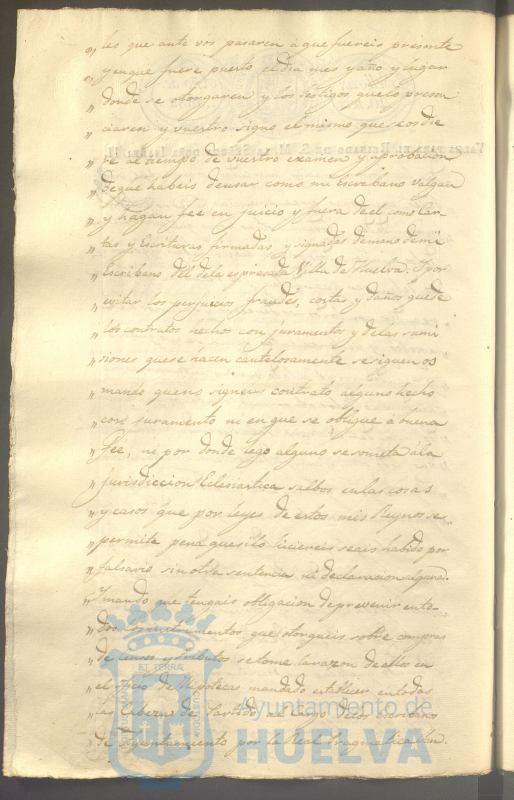 „ les que ante vos pasaren á que fuereis presente
„ y en que fuere puesto el dia mes y año y lugar
„ donde se otorgaren y los testigos que lo presen
„ ciaren y vuestro signo el mismo que se os die
„ re al tiempo de vuestro examen y aprobacion
„ de que habeis de usar como mi Escribano valgan
„ y hagan fee en juicio y fuera de el como Car
„ tas y Escrituras firmadas y signadas de mano de mi
„ Escribano del de la espresada Villa de Huelva. Y por
„ evitar los perjuicios fraudes, costas y daños que de
„ los contratos hechos con juramentos y de las sumi
„ siones que se hacen cautelosamente se siguen os
„ mando que no signeis contrato alguno hecho
„ con juramento ni en que se obligue á buena
„ fee, ni por donde lego alguno se someta á la
„ jurisdiccion Eclesiastica salbos en las cosas
„ y casos que por leyes de estos mis Reynos se
„ permite pena que si lo hiciereis seais habido por
„ falsario sin otra sentencia ni declaracion alguna.
„ Y mando que tengais obligacion de prevenir en to
„ dos los instrumentos que otorgueis sobre compras
„ de censos y tributos se tome la razon de ellos en
„ el oficio de Hipotecas mandado establecer en todas
„ las Cabezas de Partido al cargo de los escribano
„ de Ayuntamiento por la Real Pragmatica San
ET TERRAE
CUSTODIA
Ayuntamiento de
HUELVA